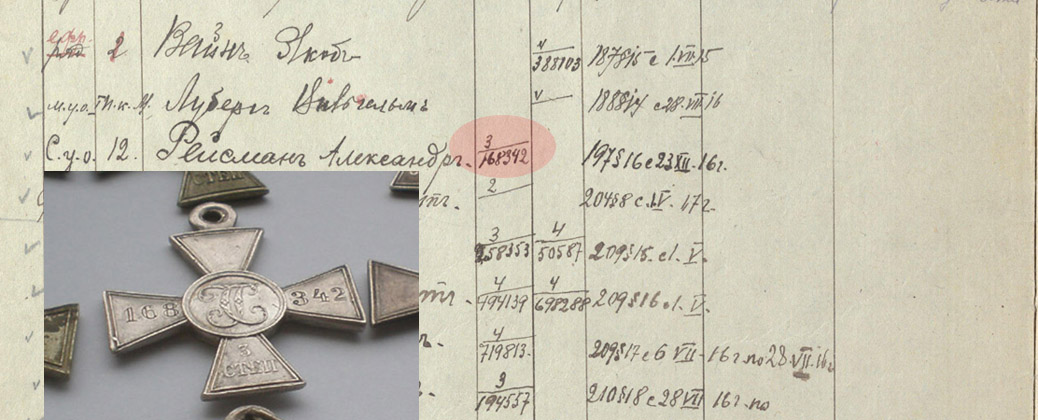 ефр. 2 Вейнъ Якобъ 4/388103 187§15 с 1.VII.15
м.у.о. М. Луберъ Вильгельмъ 188§14 с 28.VII 16
С.у.о. 12. Рейсманъ Александръ. 3/168342 197§16 с 23 XII. 16г.
2 204§8 с 1.V. 17г.
3/ 58353 4/50587 209§15 с 1. V.
4/794139 4/698288 209§16 с 1. V.
4/719813. 209§17 с 6 VII - 16г. по 28 VII. 16г
3/194557 210§18 с 28 VII 16г. по
СТЕП
168 342
3
СТЕП